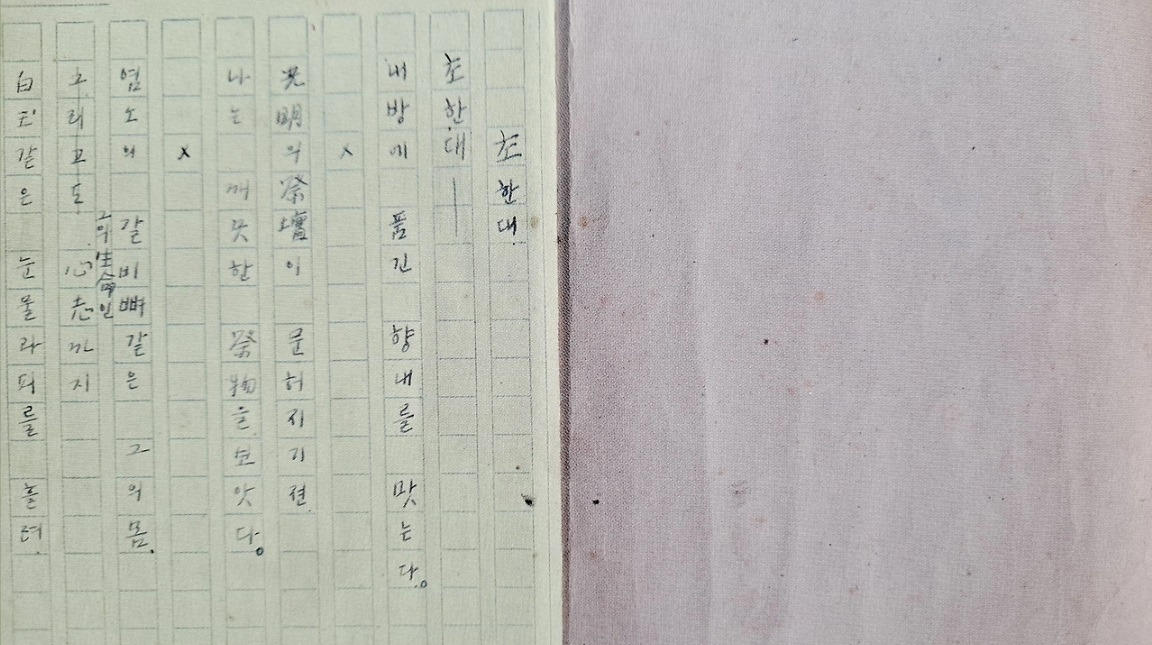 초한대.
초한대—
내방에 품긴 향내를 맛는다。
×
光明의祭壇이 문허지기젼
나는 깨끗한 祭物을보앗다。
×
염소의 갈비뼈같은 그의몸.
그의生命인
그리고도 心志까지
白玉같은 눈물과피를 흘려.